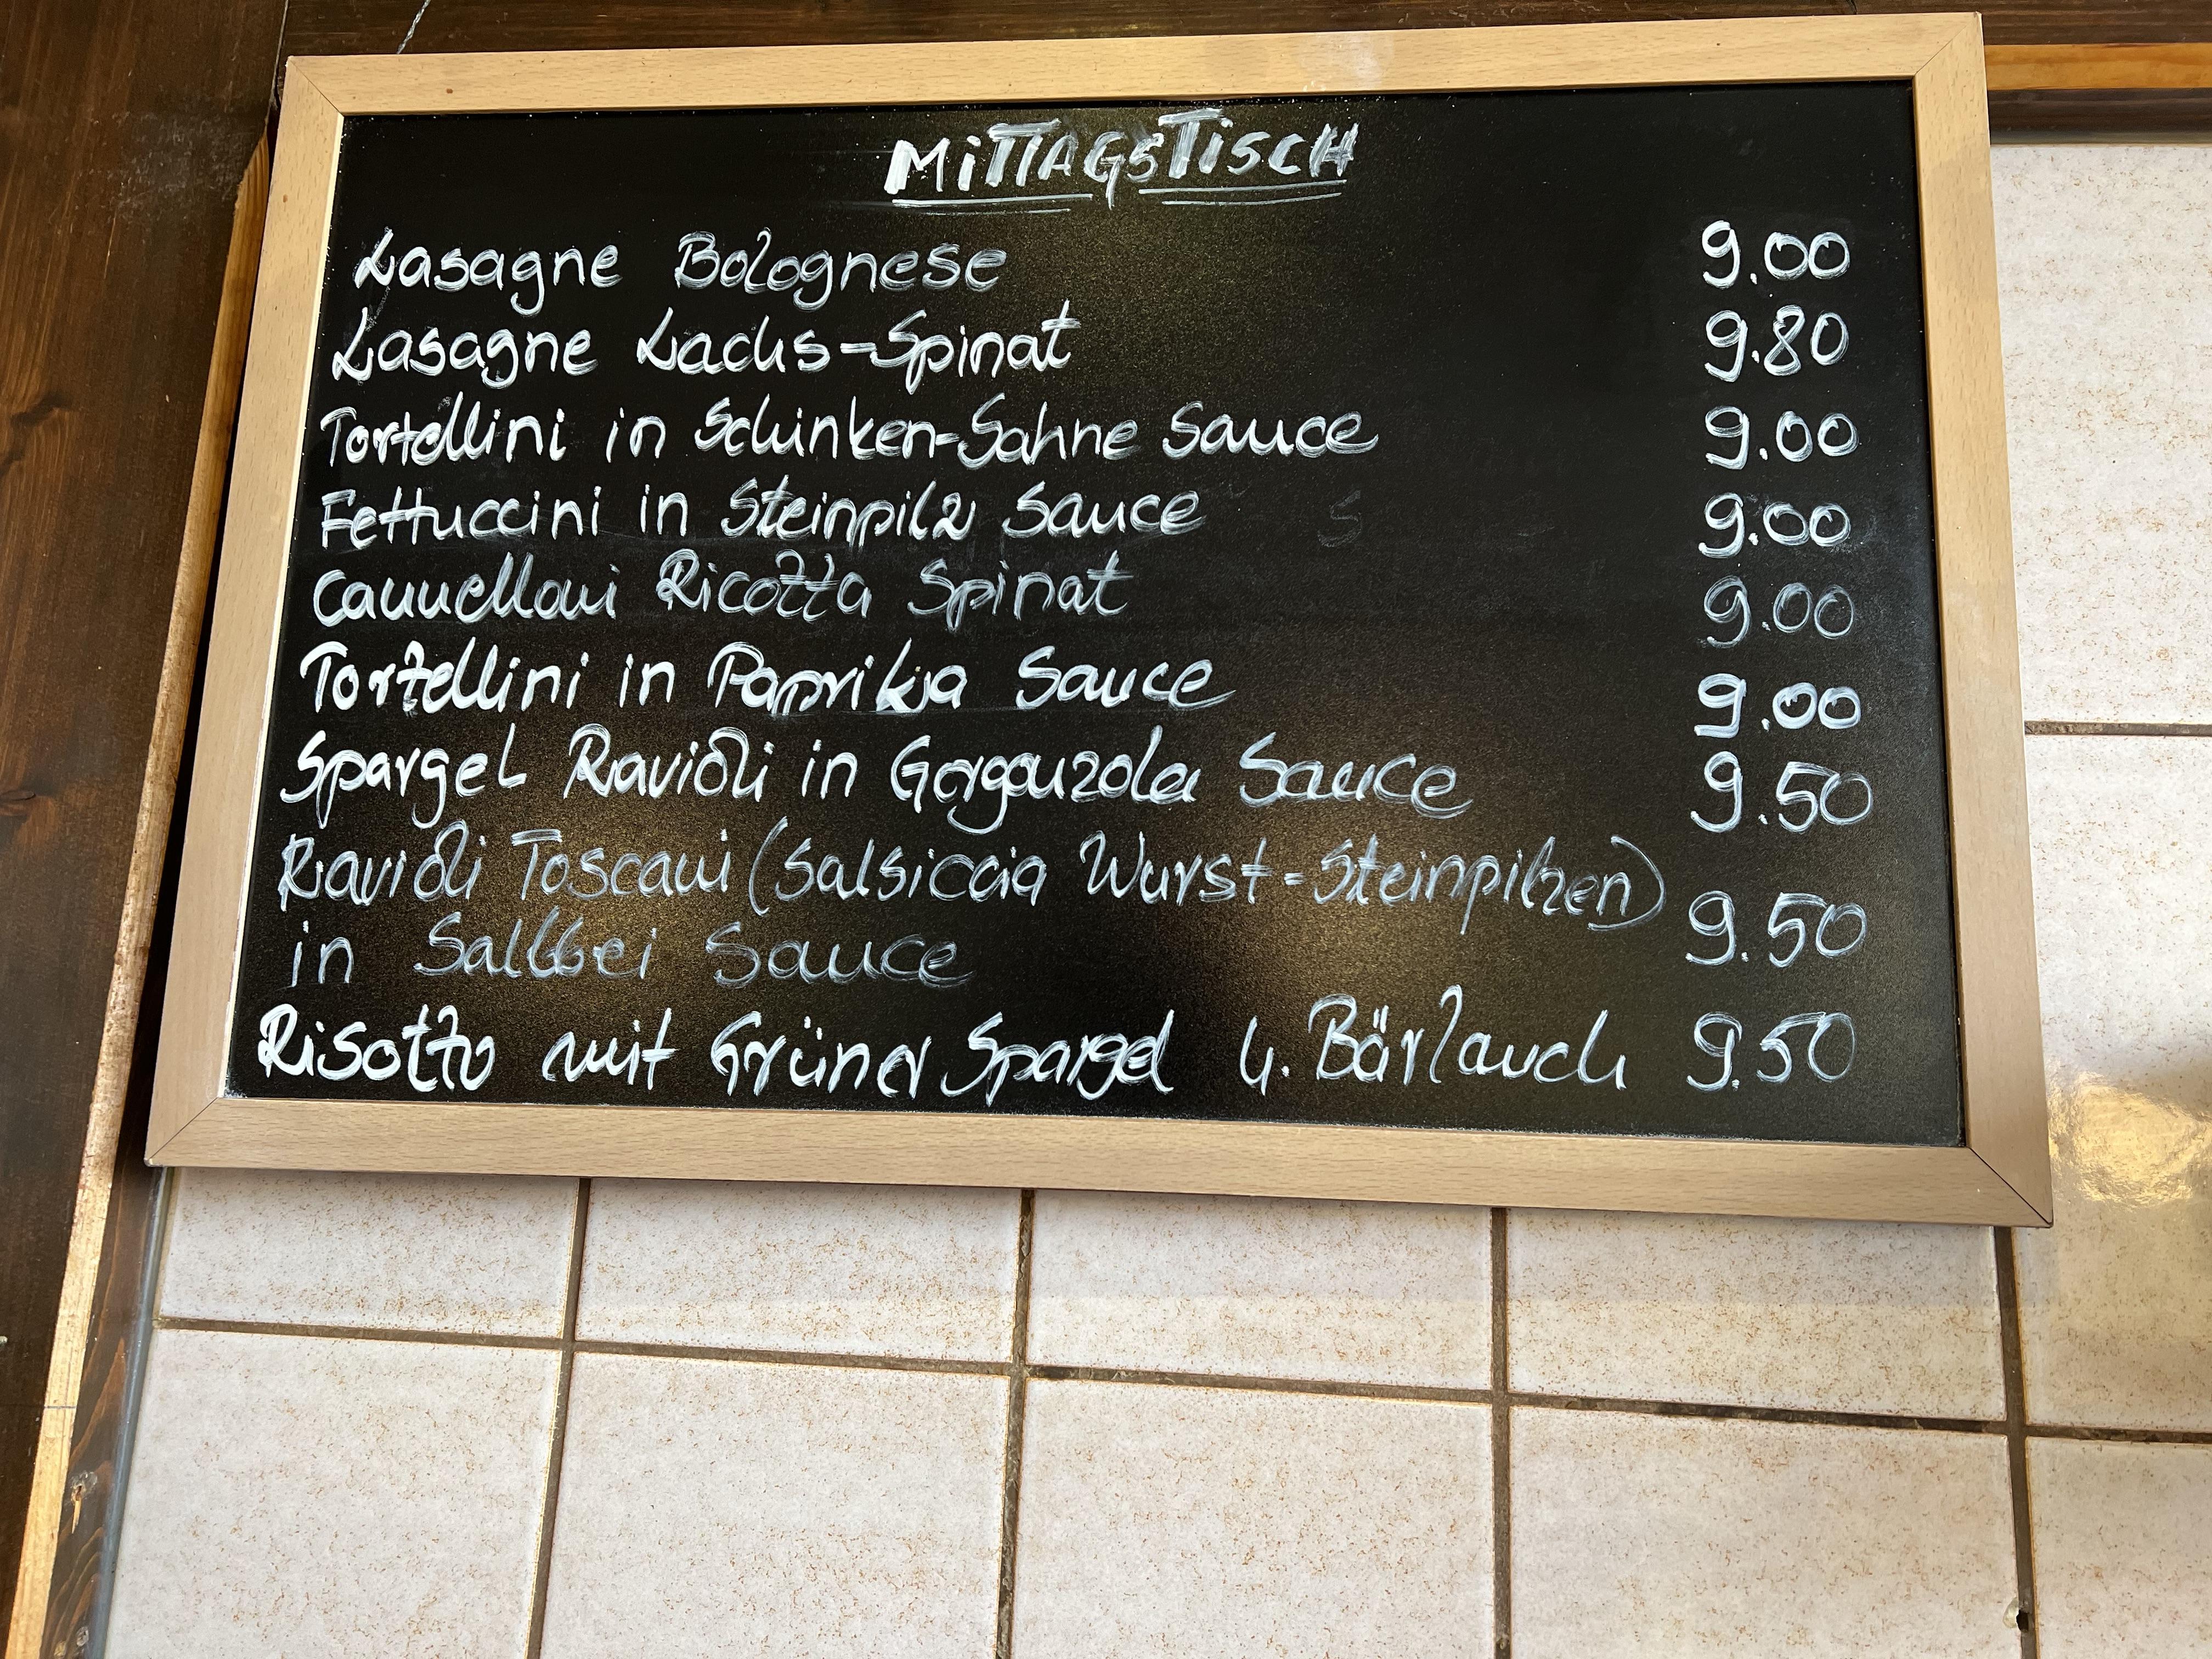 MITTAGSTISCH
Lasagne Bolognese 9.00
Lasagne Lachs-Spinat 9.80
Tortellini in Schinken-Sahne Sauce 9.00
Fettuccini in Steinpilz Sauce 9.00
Cannelloni Ricotta Spinat 9.00
Tortellini in Paprika Sauce 9.00
Spargel Ravioli in Gorgonzola Sauce 9.50
Ravioli Toscani (Salsiccia Wurst-Steinpilzen)
in Sallbei Sauce 9.50
Risotto mit Grüner Spargel u. Bärlauch 9.50